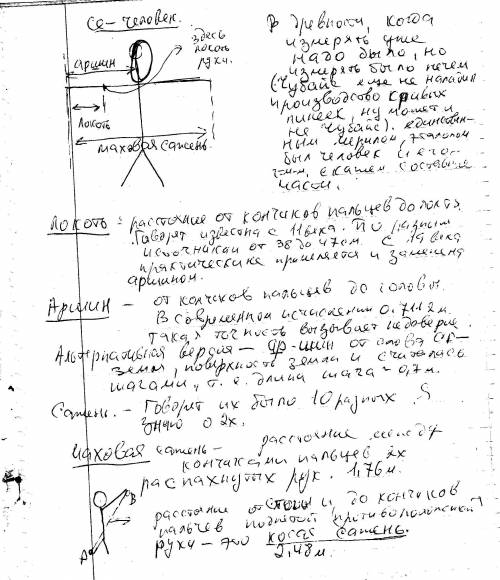 се - человек.
здесь
локоть
руки.
аршин
локоть
маховая сажень
В древности, когда
измерять уже
надо было, но
измерять было нечем
(Чубайс еще не наладил
производство кривых
линеек, ну может и
не Чубайс). единствен-
ным мерилом, эталоном
был человек и его
, скажем составные
части.
Локоть - расстояние от кончиков пальцев до локтя.
Говорят известна с 11 века. По разным
источникам от 38 до 47 см. С 19 века
практически не применяется и заменена
аршином.
Аршин - от кончиков пальцев до головы.
В современном исчислении 0.7112 м.
Такая точность вызывает недоверие.
Альтернативная версия - ар-шин от слова ар-
земля, поверхность земли и считалась
шагами, т. е. длина шага = 0,7 м.
Сажень. - Говорят их было 10 разных. Я
знаю о 2х.
Маховая сажень - расстояние между
кончиками пальцев 2х
распахнутых рук. 1,76 м.
В
А
расстояние от стопы и до кончиков
пальцев поднятой противоположной
руки - это косая сажень.
2,48 м.